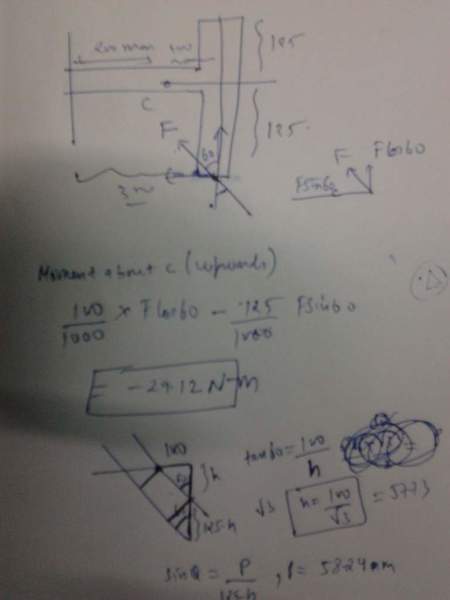 200 mm 100
125
C
125
F
60
300
F Fcos60
Fsin60
Moment about C (upwards)
100/1000 × Fcos60 − 125/1000 Fsin60
= −29.12 N-m
100
tan60 = 100/h
h
60
125-h
√3 h = 100/√3 = 57.73
sinθ = P/125-h , P = 58.24 mm